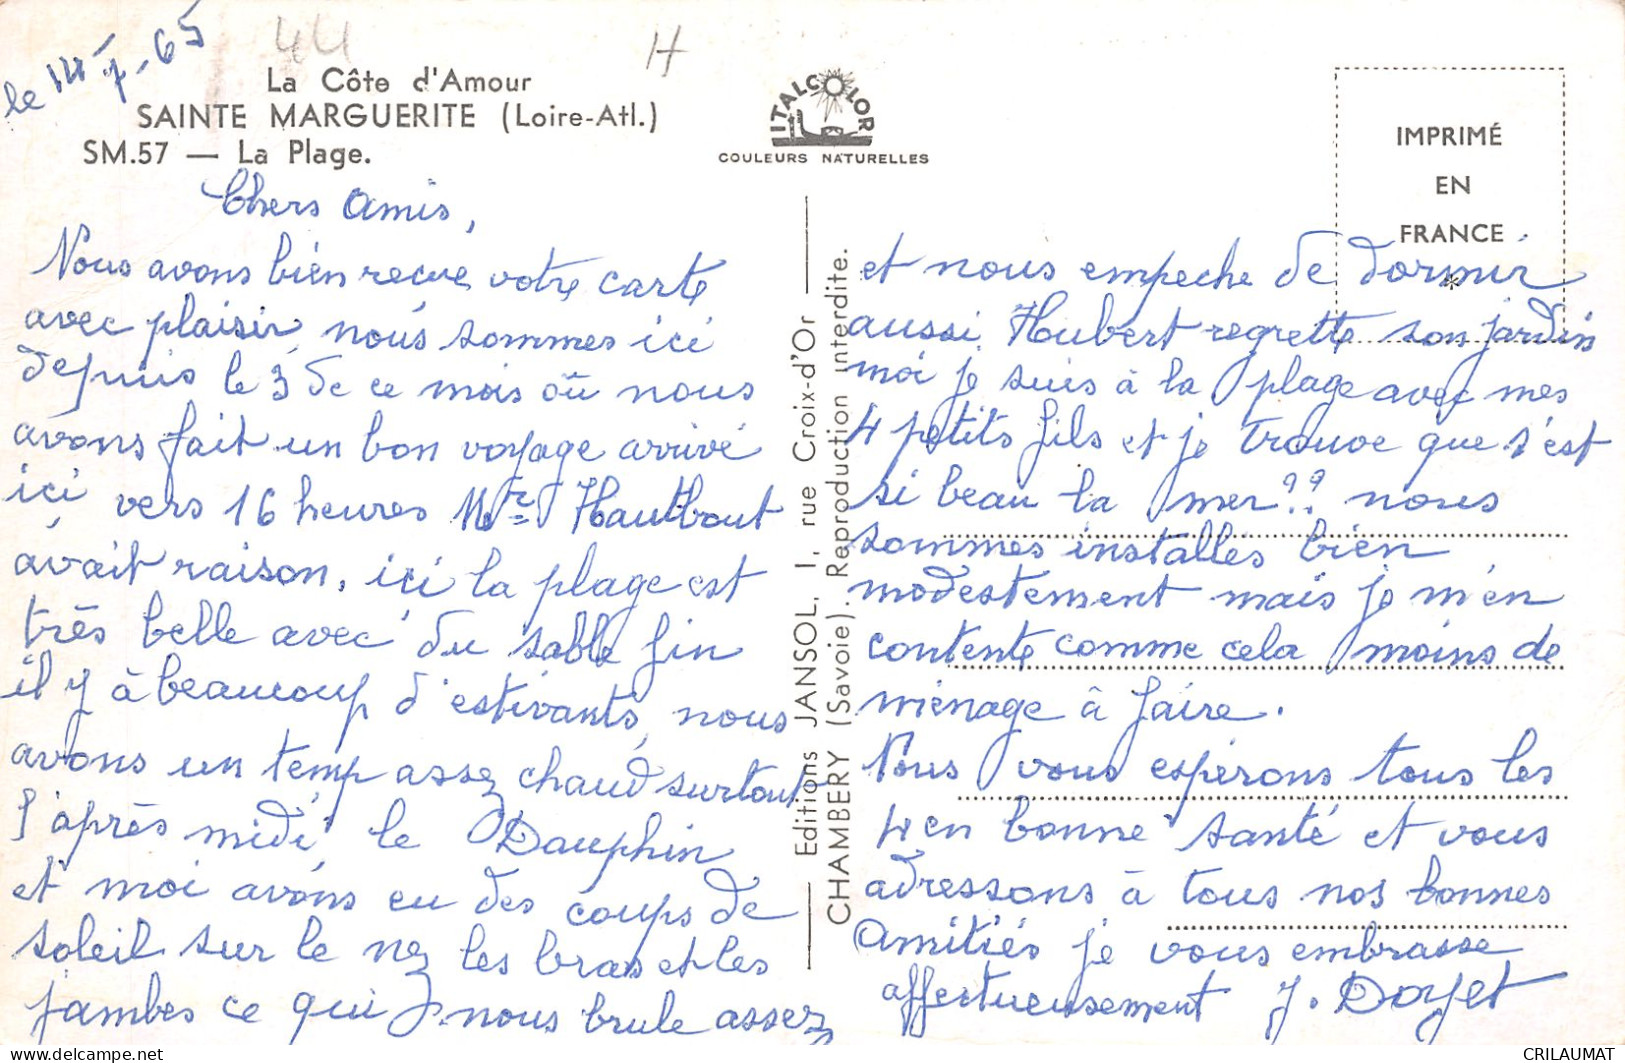 le 14-7-65
44
H
La Côte d'Amour
SAINTE MARGUERITE (Loire-Atl.)
SM.57 — La Plage.
ITALCOLOR
COULEURS NATURELLES
IMPRIMÉ
EN
FRANCE
*
Chers Amis,
Nous avons bien recue votre carte
avec plaisir, nous sommes ici
depuis le 3 de ce mois où nous
avons fait un bon voyage arrivé
ici vers 16 heures Mr Hautbout
avait raison, ici la plage est
très belle avec du sable fin
il y à beaucoup d'estivants, nous
avons un temp assez chaud surtout
l'après midi le Dauphin
et moi avons eu des coups de
soleil sur le nez les bras et les
jambes ce qui nous brule assez
Editions JANSOL, 1, rue Croix-d'Or
CHAMBERY (Savoie). Reproduction interdite.
et nous empeche de dormir
aussi, Hubert regrette son jardin
moi je suis à la plage avec mes
4 petits fils et je trouve que s'est
si beau la mer?? nous
sommes installés bien
modestement mais je m'en
contente comme cela moins de
ménage à faire.
Nous vous espérons tous les
4 en bonne santé et vous
adressons à tous nos bonnes
Amitiés je vous embrasse
affectueusement J. Doyet
CRILAUMAT